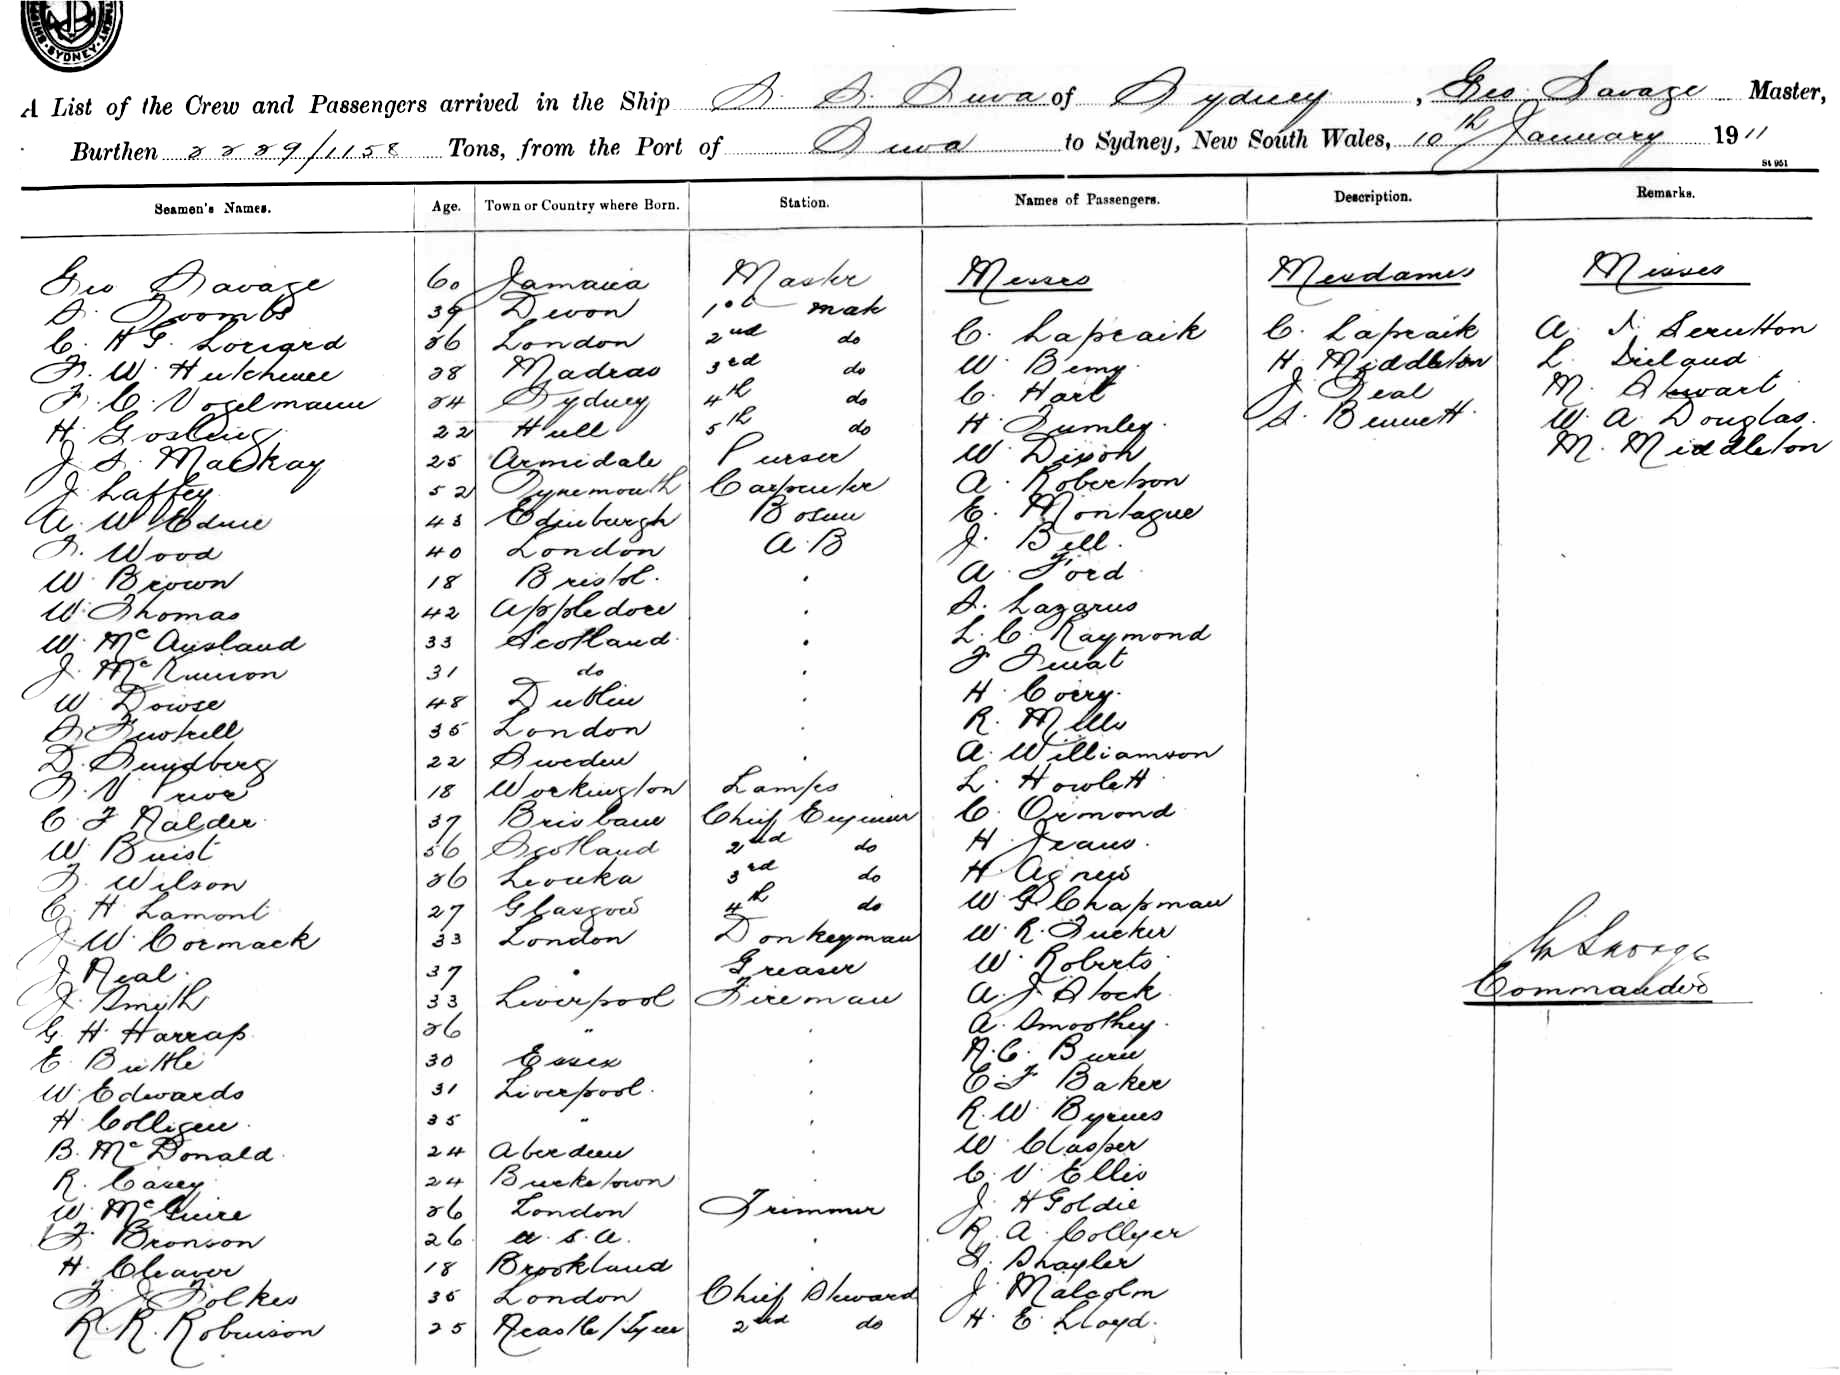 SYDNEY
A List of the Crew and Passengers arrived in the Ship S. S. Suva of Sydney, Geo. Savage Master,
Burthen 2229/1158 Tons, from the Port of Suva to Sydney, New South Wales, 10th January 1911
St 951
Seamen's Names. Age. Town or Country where Born. Station. Names of Passengers. Description. Remarks.
Geo Savage 60 Jamaica Master Messrs Mesdames Misses
S. Toombs 39 Devon 1st mate
C. H G. Loriard 26 London 2nd do C. Lapraik C. Lapraik A. J. Scrutton
F. W. Hutchince 28 Madras 3rd do W. Bemy. H. Middleton L. Dieland
F. C. Vogelmann 24 Sydney 4th do C. Hart J. Teal M. Stewart
H Gosling 22 Hull 5th do H Tumley. S. Bennett W. A Douglas.
J. S. Mackay 25 Armidale Purser W. Dixon M. Middleton
J Laffey 52 Tynemouth Carpenter A. Robertson
A. W Edine 43 Edinburgh Bosun E. Montague
F. Wood 40 London A. B J. Bell.
W. Brown 18 Bristol. A. Ford
W. Thomas 42 Appledore S. Lazarus
W. McAusland 33 Scotland. L. C. Raymond
J. Mc 31 do F
W. Dowse 48 Dublin H. Corry.
S. Fewtrell 35 London R. Mills
D. Sundberg 22 Sweden A. Williamson
F. V Prior 18 Workington Lamps L. Howlett
C. F Nalder 37 Brisbane Chief Engineer C. Ormond
W. Buist 56 Scotland 2nd do H Jeans.
F. Wilson 26 Levuka 3rd do H. Agnew
C. H Lamont 27 Glasgow 4th do W. G Chapman
J. W. Cormack 33 London Donkeyman W. R. Tucker
J Neal. 37 " Greaser W. Roberts. G Savage
J. Smith 33 Liverpool Fireman A. J Stock Commander
G. H. Harrap 26 " A. Smoothey.
E. Buttle 30 Essex N. C. Burn
W. Edwards 31 Liverpool. E. F Baker
H. Colligen 35 " R. W. Byrnes
B. McDonald 24 Aberdeen W Clasper
R. Casey 24 C. V. Ellis
W. McGuire 26 London Trimmer J. H Goldie
F. Bronson 26 U. S. A. R. A. Collyer
H. Cleaver 18 Brookland S. Shayler
F. J Folkes 35 London Chief Steward J. Malcolm
R. R. Robinson 25 Ncastle/Tyne 2nd do H. E. Lloyd.